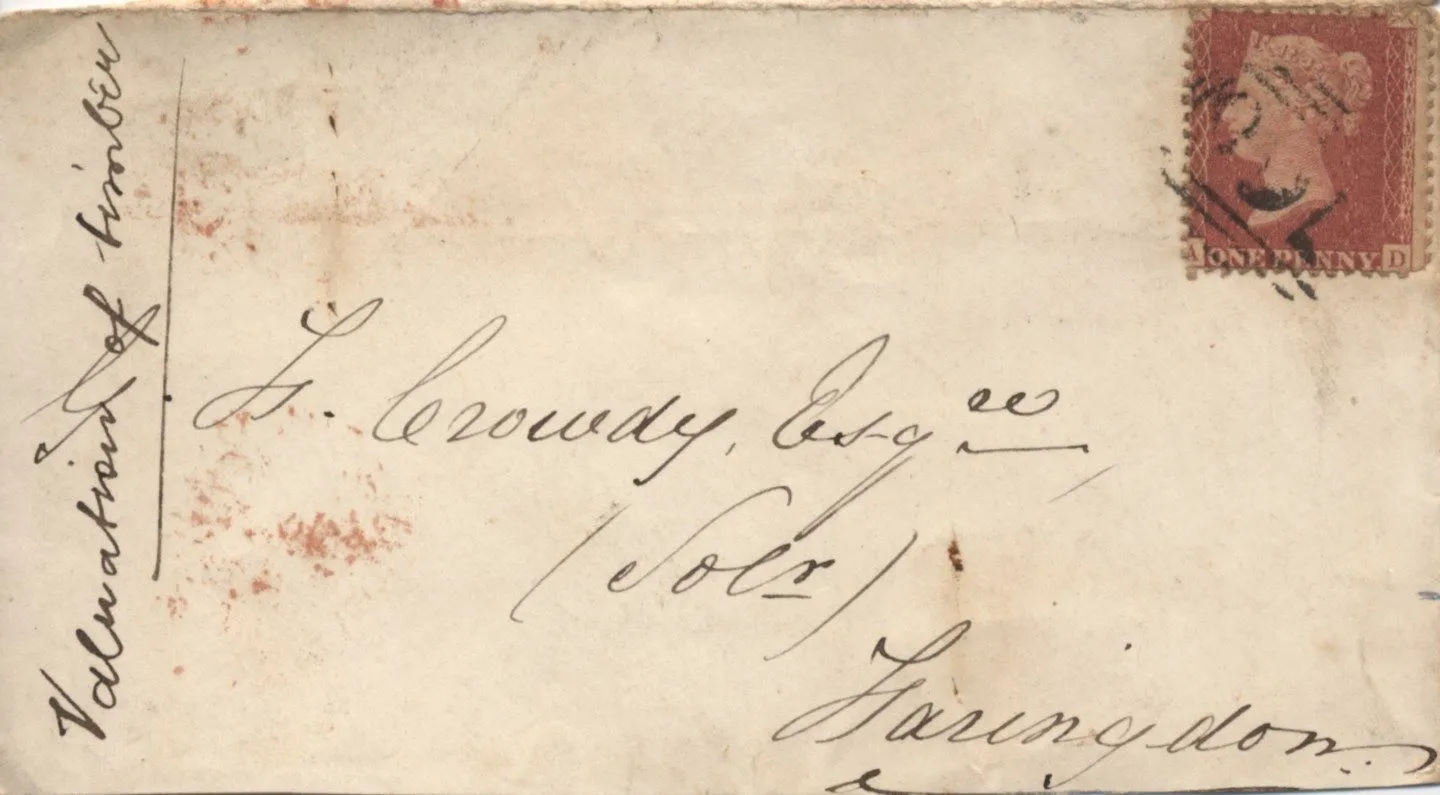 Valuation of timber
F. Crowdy, Esqre,
(Solr)
Faringdon
ONE PENNY D